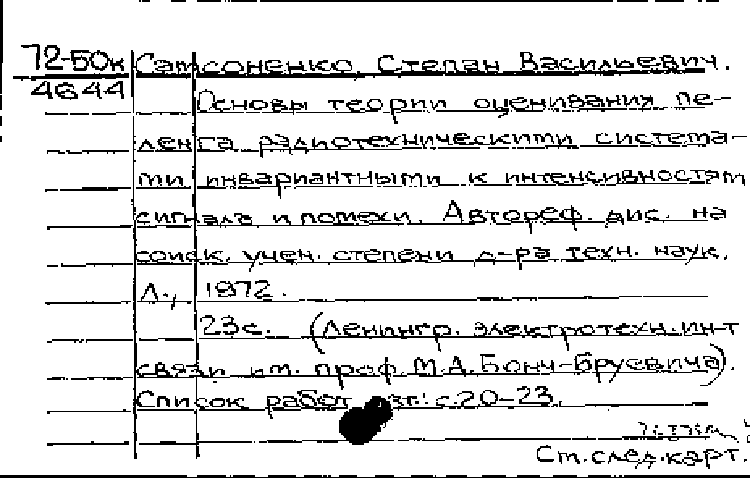 72-50к Самсоненко, Степан Васильевич.
4644
Основы теории оценивания пе-
ленга радиотехническими система-
ми инвариантными к интенсивностям
сигнала и помехи. Автореф. дис. на
соиск. учен. степени д-ра техн. наук.
Л., 1972.
23с. (Ленингр. электротехн. ин-т
связи им. проф. М.А. Бонч-Бруевича).
Список работ авт.: с.20-23.
См. след. карт.